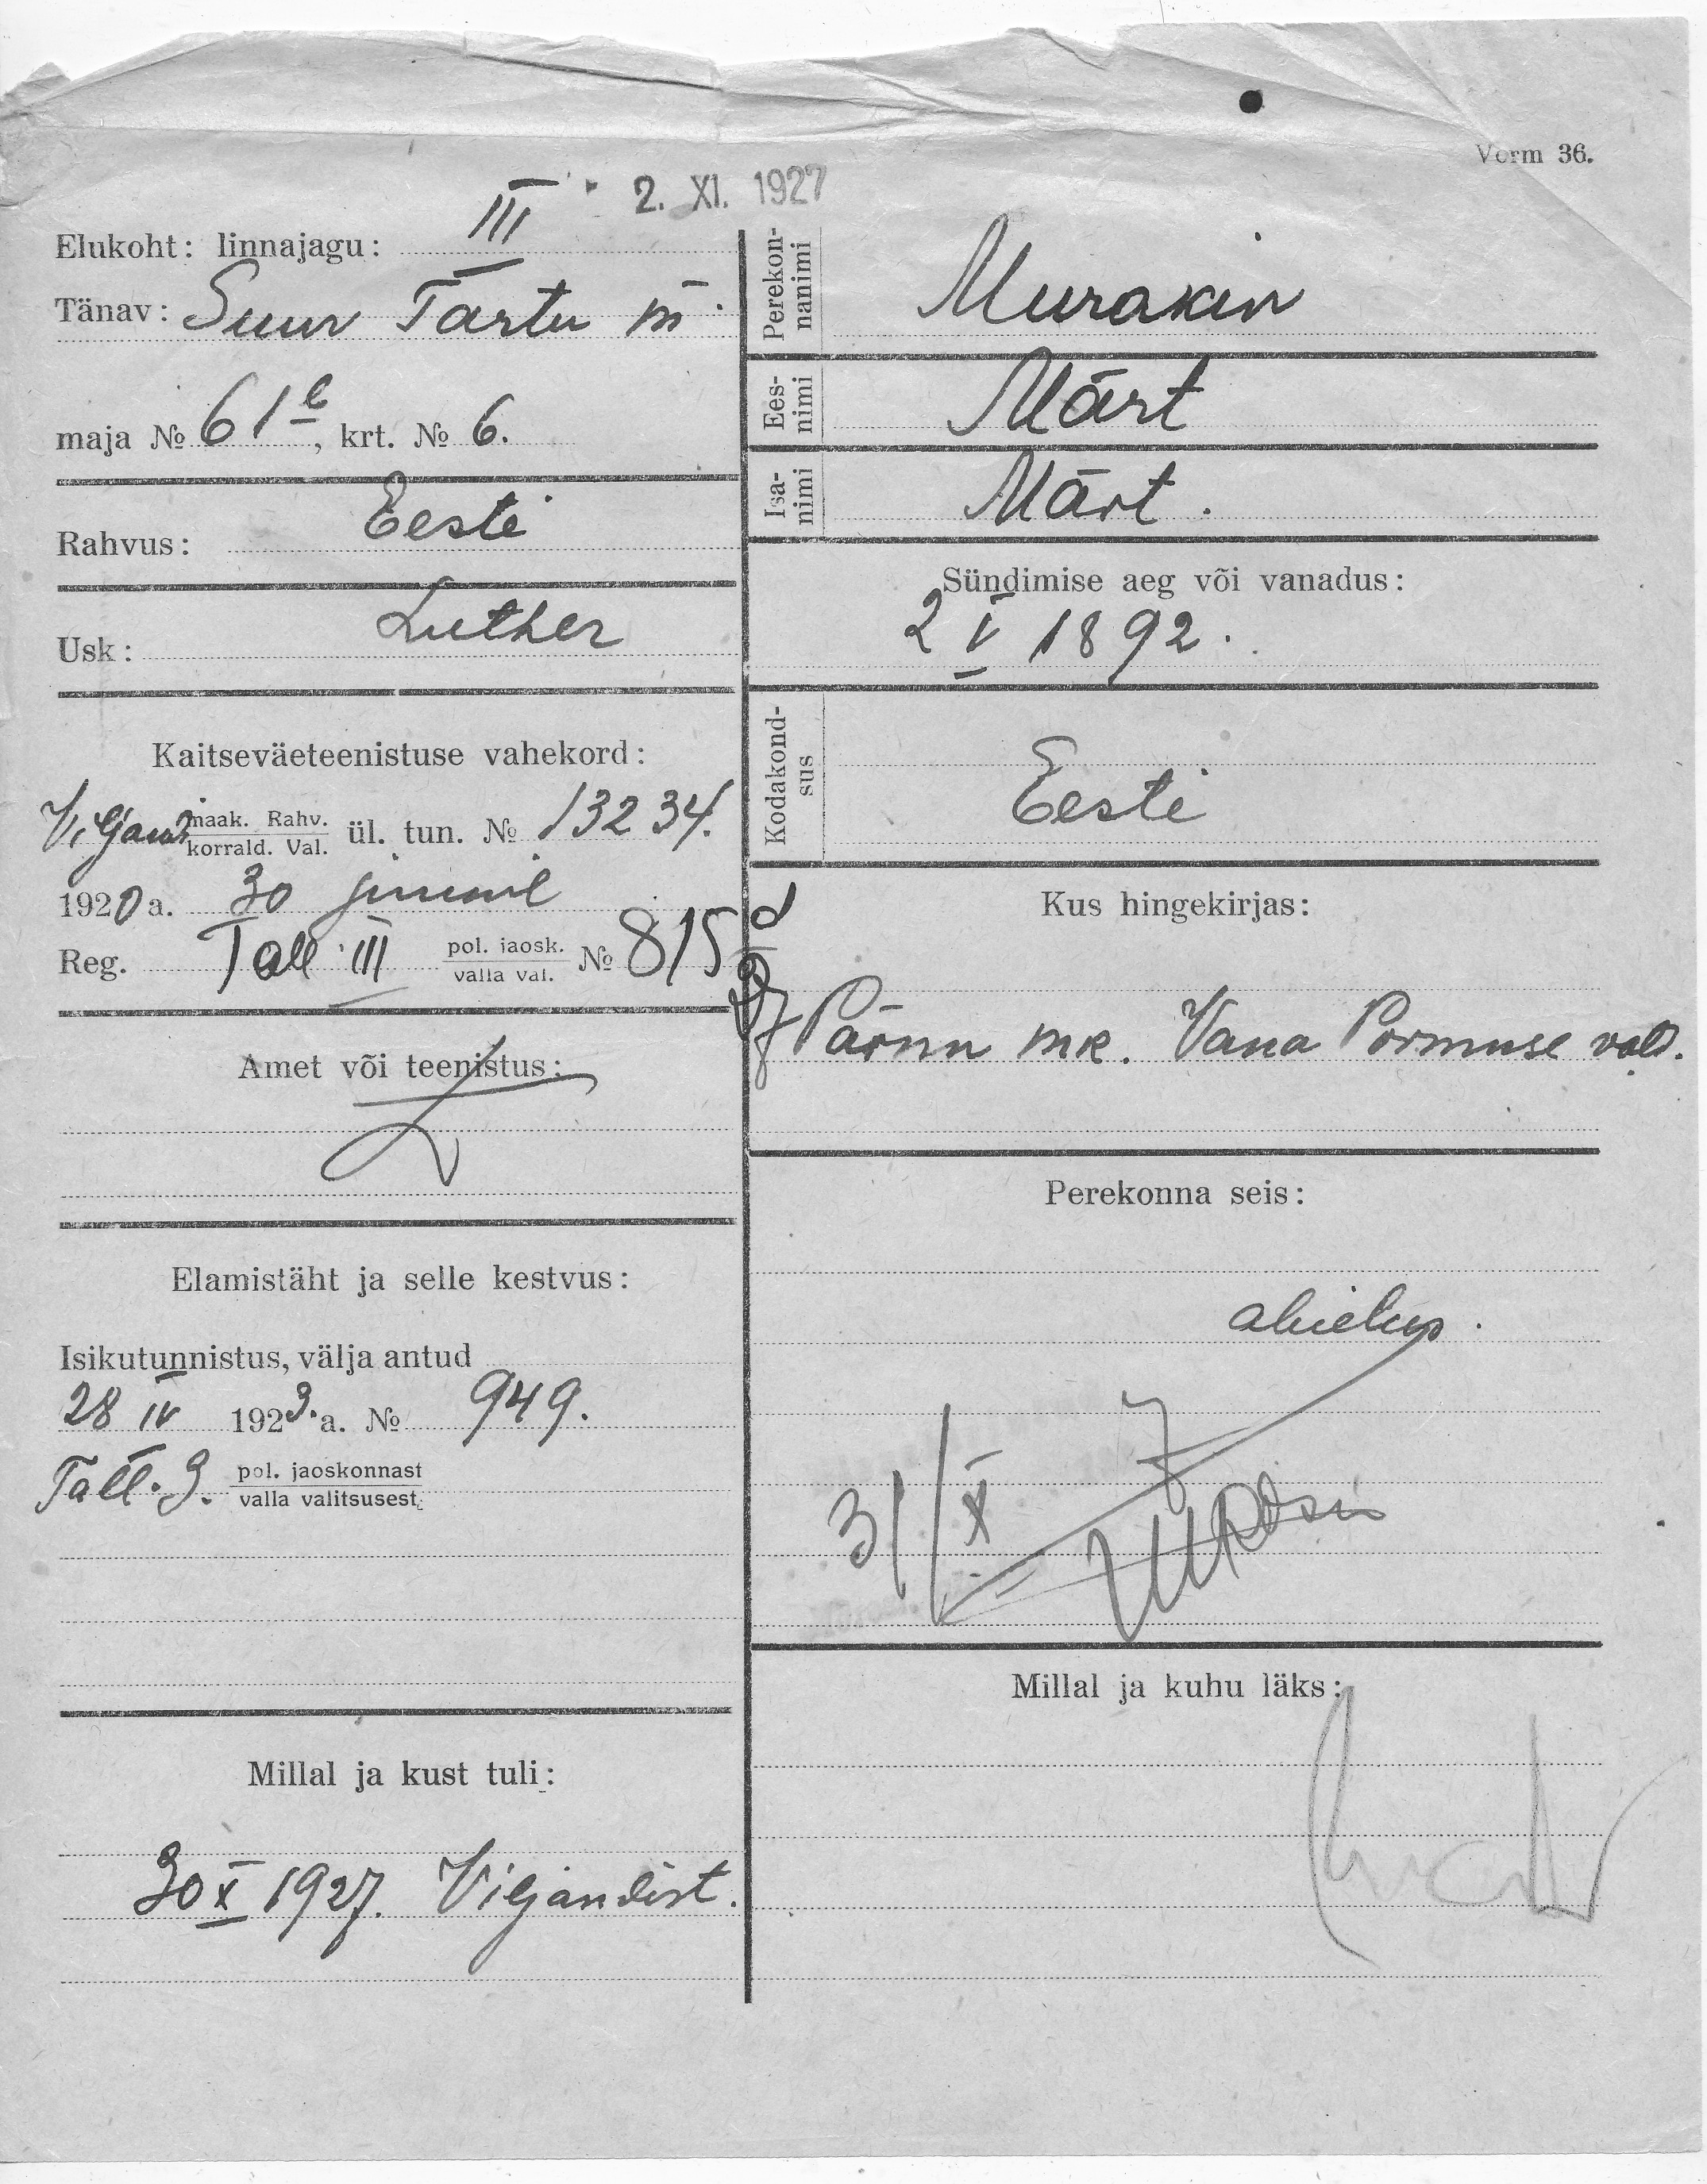 Vorm 36.
2. XI. 1927
Elukoht: linnajagu: III
Tänav: Suur Tartu m
maja № 61e, krt. № 6.
Rahvus: Eesti
Usk: Luther
Kaitseväeteenistuse vahekord:
Viljandi maak. Rahv. korrald. Val. ül. tun. № 13234.
1920 a. 30 juunil
Reg. Tall III pol. jaosk. valla val. № 815
Amet või teenistus:
Elamistäht ja selle kestvus:
Isikutunnistus, välja antud
28 IV 1923. a. № 949.
Tall. 3. pol. jaoskonnast
valla valitsusest
Millal ja kust tuli:
30 X 1927. Viljandist.
Perekonnanimi Murakin
Eesnimi Märt
Isanimi Märt.
Sündimise aeg või vanadus:
2 V 1892.
Kodakondsus
Eesti
Kus hingekirjas:
Pärnu mk. Vana Pormuse vald.
Perekonna seis:
abielus.
31/X
Millal ja kuhu läks: